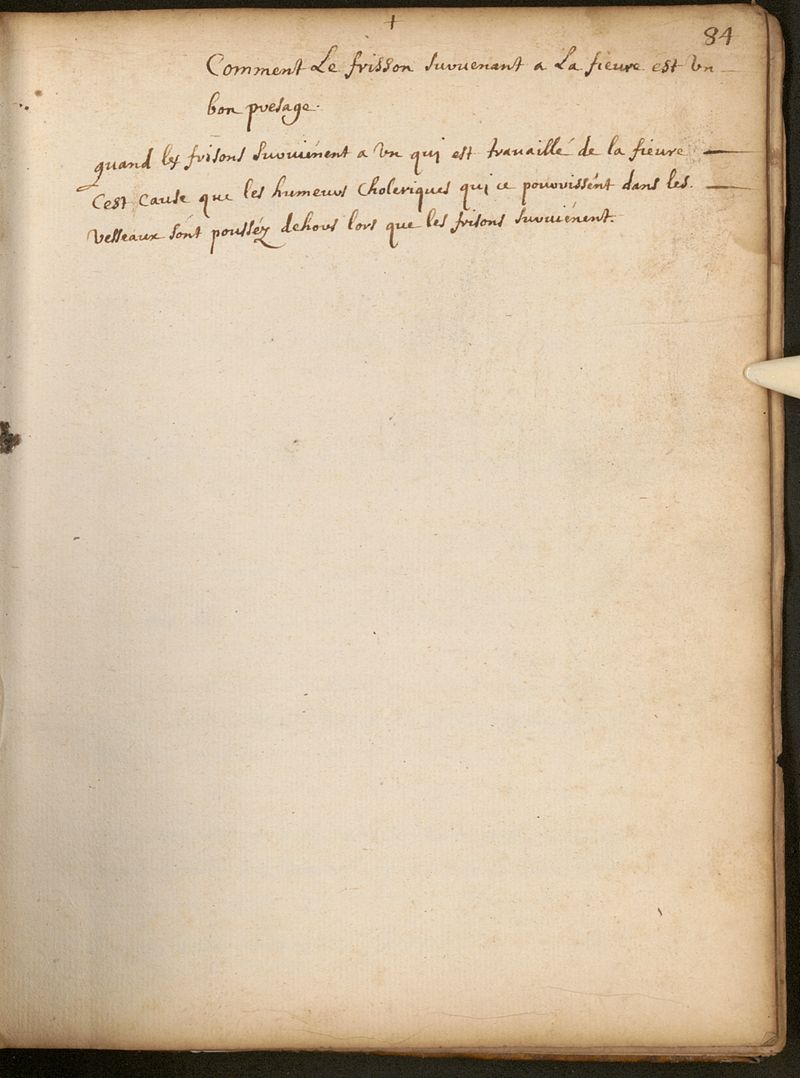 +
84
Comment Le frisson survenant a La fievre est Un
bon presage.
quand les frisons survienent a Un qui est travaillé de la fievre
C'est cause que les humeurs Choleriques qui ce pourrissent dans les
Vesseaux sont poussez dehors lors que les frisons survienent.